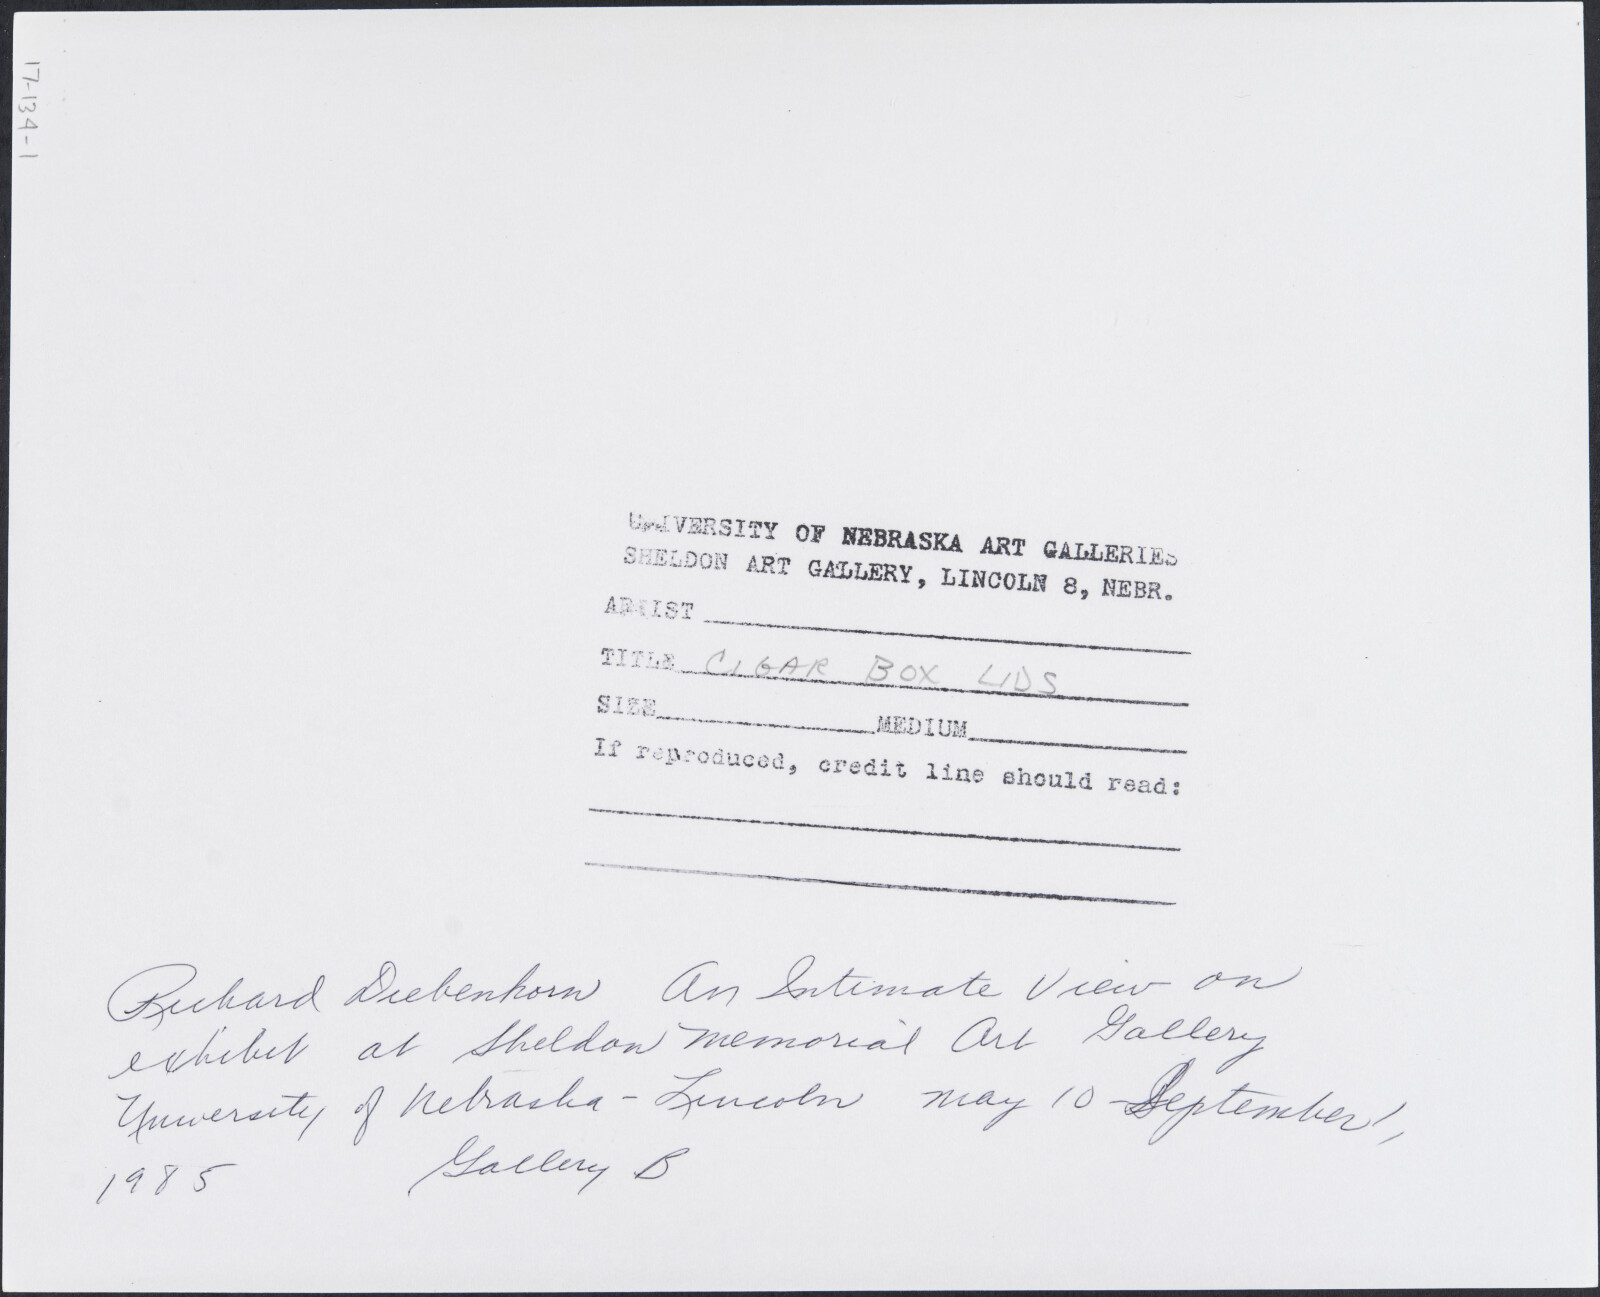 17-134-1
UNIVERSITY OF NEBRASKA ART GALLERIES
SHELDON ART GALLERY, LINCOLN 8, NEBR.
ARTIST
TITLE CIGAR BOX LIDS
SIZE MEDIUM
If reproduced, credit line should read:
Richard Diebenkorn An Intimate View on
exhibit at Sheldon Memorial Art Gallery
University of Nebraska - Lincoln May 10 - September 1,
1985 Gallery B